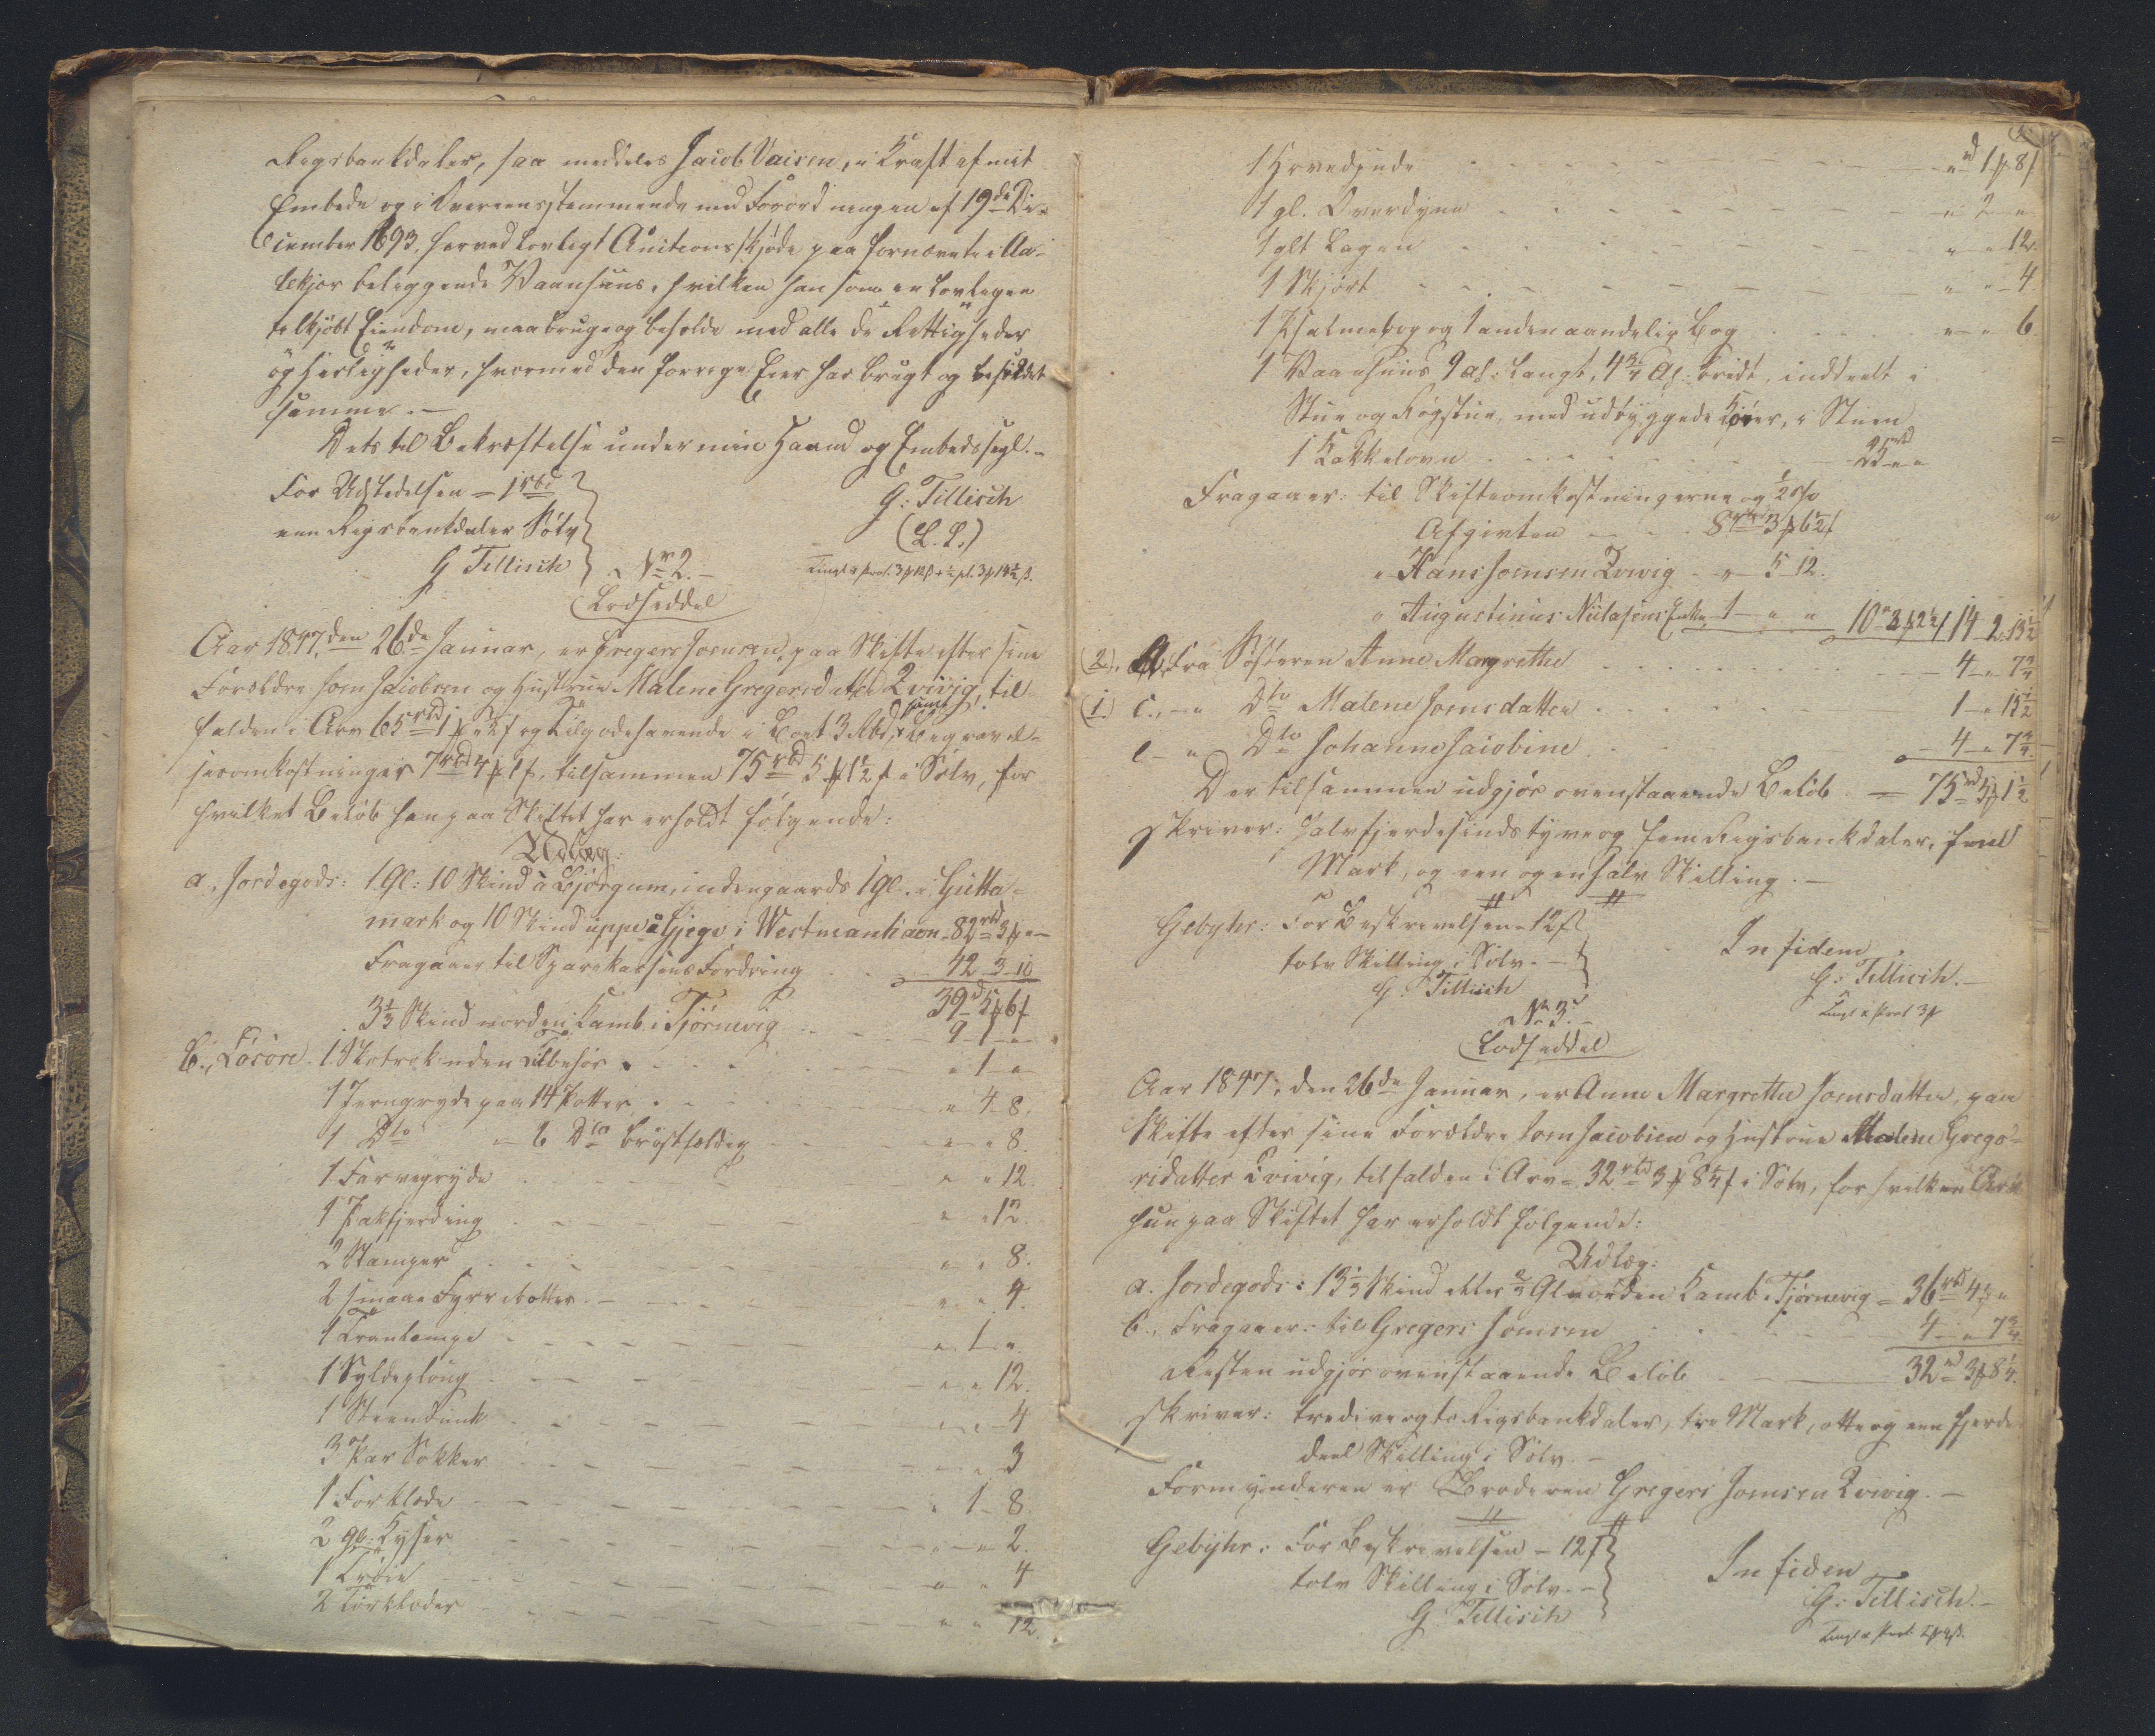 Rigsbankdaler, saa meddeles Jacob Vaisen, i Kraft af mit
Embede og i Overeensstemmende med Forordningen af 19de De-
cember 1693, herved lovligt Auctionsskjøde paa fornævnte i
beliggende Vaanhuus, hvilken han som en lovligen
tilkjøbt Eiendom, maa bruge og beholde med alle de Rettigheder
og Herligheder, hvormed den forrige Eier har brugt og besiddet
samme. –
Dets til Bekræftelse under min Haand og Embedssegl. –
For Udstedelsen = 1 rbd
een Rigsbankdaler Sølv
G Tillisch
G: Tillisch
(L. S.)
Nr 2. –
Lodseddel
Aar 1847, den 26de Januar, er Gregers Joensen, paa Skifte efter sine
Forældre Joen Jacobsen og Hustrue Malene Gregersdatter Qvivig, til-
falden i Arv 65 rbd 1 og Tilgodehavende i Boet 3 Rbd, samt Begravel-
sesomkostninger 7 rbd 4 1 ß, tilsammen 75 rbd 5 1½ ß i Sølv, for
hvilket Beløb han paa Skiftet har erholdt følgende:
Udlæg:
a, Jordegods: 1 Gl: 10 Skind à Bjørgum, indengaards 1 Gl. i Gutta-
mark og 10 Skind uppe à Gjege i Westmanhavn - 82 rbd 3
Fragaaer til Sparekassens Fordring 42 - 3 - 10
39 rd 5 6 ß
3⅓ Skind norden Kamb i Tjørnevig 9 - 1 -
b., Løsøre. 1 Skotrok uden Tilbehør " 1 "
1 Jerngryde paa 14 Potter " 4 - 8.
1 Dto – 6 Dto brøstfældig " " 8.
1 Farvegryde " " 12.
1 Pakfjerding " " 12.
2 Stamper " " 8.
2 smaae Fyrrebøtter " " 4.
1 Tranlampe " 1 "
1 Syldeploug " " 12.
1 Steendunk " " 4
3 Par Sokker " " 3
1 Forklæde " 1 - 8
2 gl. Kyser " " 2.
1 Trøie " " 4
2 Tørklæder " " 12.
1 Hovedpude " rd 1 8 ß
1 gl. Overdyne " 2 "
1 glt Lagen " " 12.
1 Skjørt " " 4.
1 Psalmebog og 1 anden aandelig Bog " " 6.
1 Vaanhuus 9 Al: langt, 4¾ Al: bredt, inddeelt i
Stue og Røgstue, med udbyggede Køier, i Stuen
1 Kakkelovn 25 rbd " "
Fragaaer: til Skifteomkostningerne og ½ %
Afgivten 8 rbd 3 6½ ß
" Hans Joensen Qvivig " 5 - 12.
" Augustinus Nielasens Enke 1 " " 10 " 3 2½ ß 14 - 2 - 13½
(2). Fra Søsteren Anne Margrethe 4 " 7¾
(1.) c., – " Dto Malene Joensdatter 1 " 15½
e – " Dto Johanne Jacobine 4 " 7¾
Der tilsammen udgjør ovenstaaende Beløb = 75 rd 5 1½
skriver: halvfjerdesindstyve og fem Rigsbankdaler, fem
Mark, og een og en halv Skilling. –
Gebyhr: For Beskrivelsen = 12 ß
tolv Skilling i Sølv. –
G. Tillisch
In fidem
G: Tillisch. –
Nr 3. –
Lodseddel
Aar 1847, den 26de Januar, er Anne Margrethe Joensdatter, paa
Skifte efter sine Forældre Joen Jacobsen og Hustrue Malene Grego-
ridatter Qvivig, tilfalden i Arv = 32 rbd 3 8¼ ß i Sølv, for hvilken Arv
hun paa Skiftet har erholdt følgende:
Udlæg:
a. Jordegods: 13⅓ Skind eller ⅔ Gl norden Kamb i Tjørnevig = 36 rbd 4 "
b., Fragaaer: til Gregers Joensen 4 " 7¾
Resten udgjør ovenstaaende Beløb 32 rd 3 8¼.
skriver: tredive og to Rigsbankdaler, tre Mark, otte og een fjerde-
deel Skilling i Sølv. –
Formynderen er Broderen Gregers Joensen Qvivig. –
Gebyhr: For Beskrivelsen – 12 ß
tolv Skilling i Sølv. –
G. Tillisch
In fidem
G: Tillisch. –